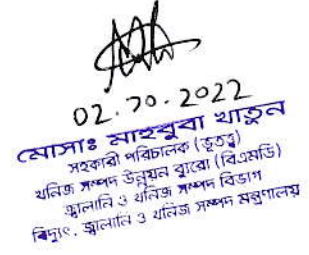 02.10.2022
মোসাঃ মাহবুবা খাতুন
সহকারী পরিচালক (ভূতত্ত্ব)
খনিজ সম্পদ উন্নয়ন ব্যুরো (বিএমডি)
জ্বালানি ও খনিজ সম্পদ বিভাগ
বিদ্যুৎ, জ্বালানি ও খনিজ সম্পদ মন্ত্রণালয়